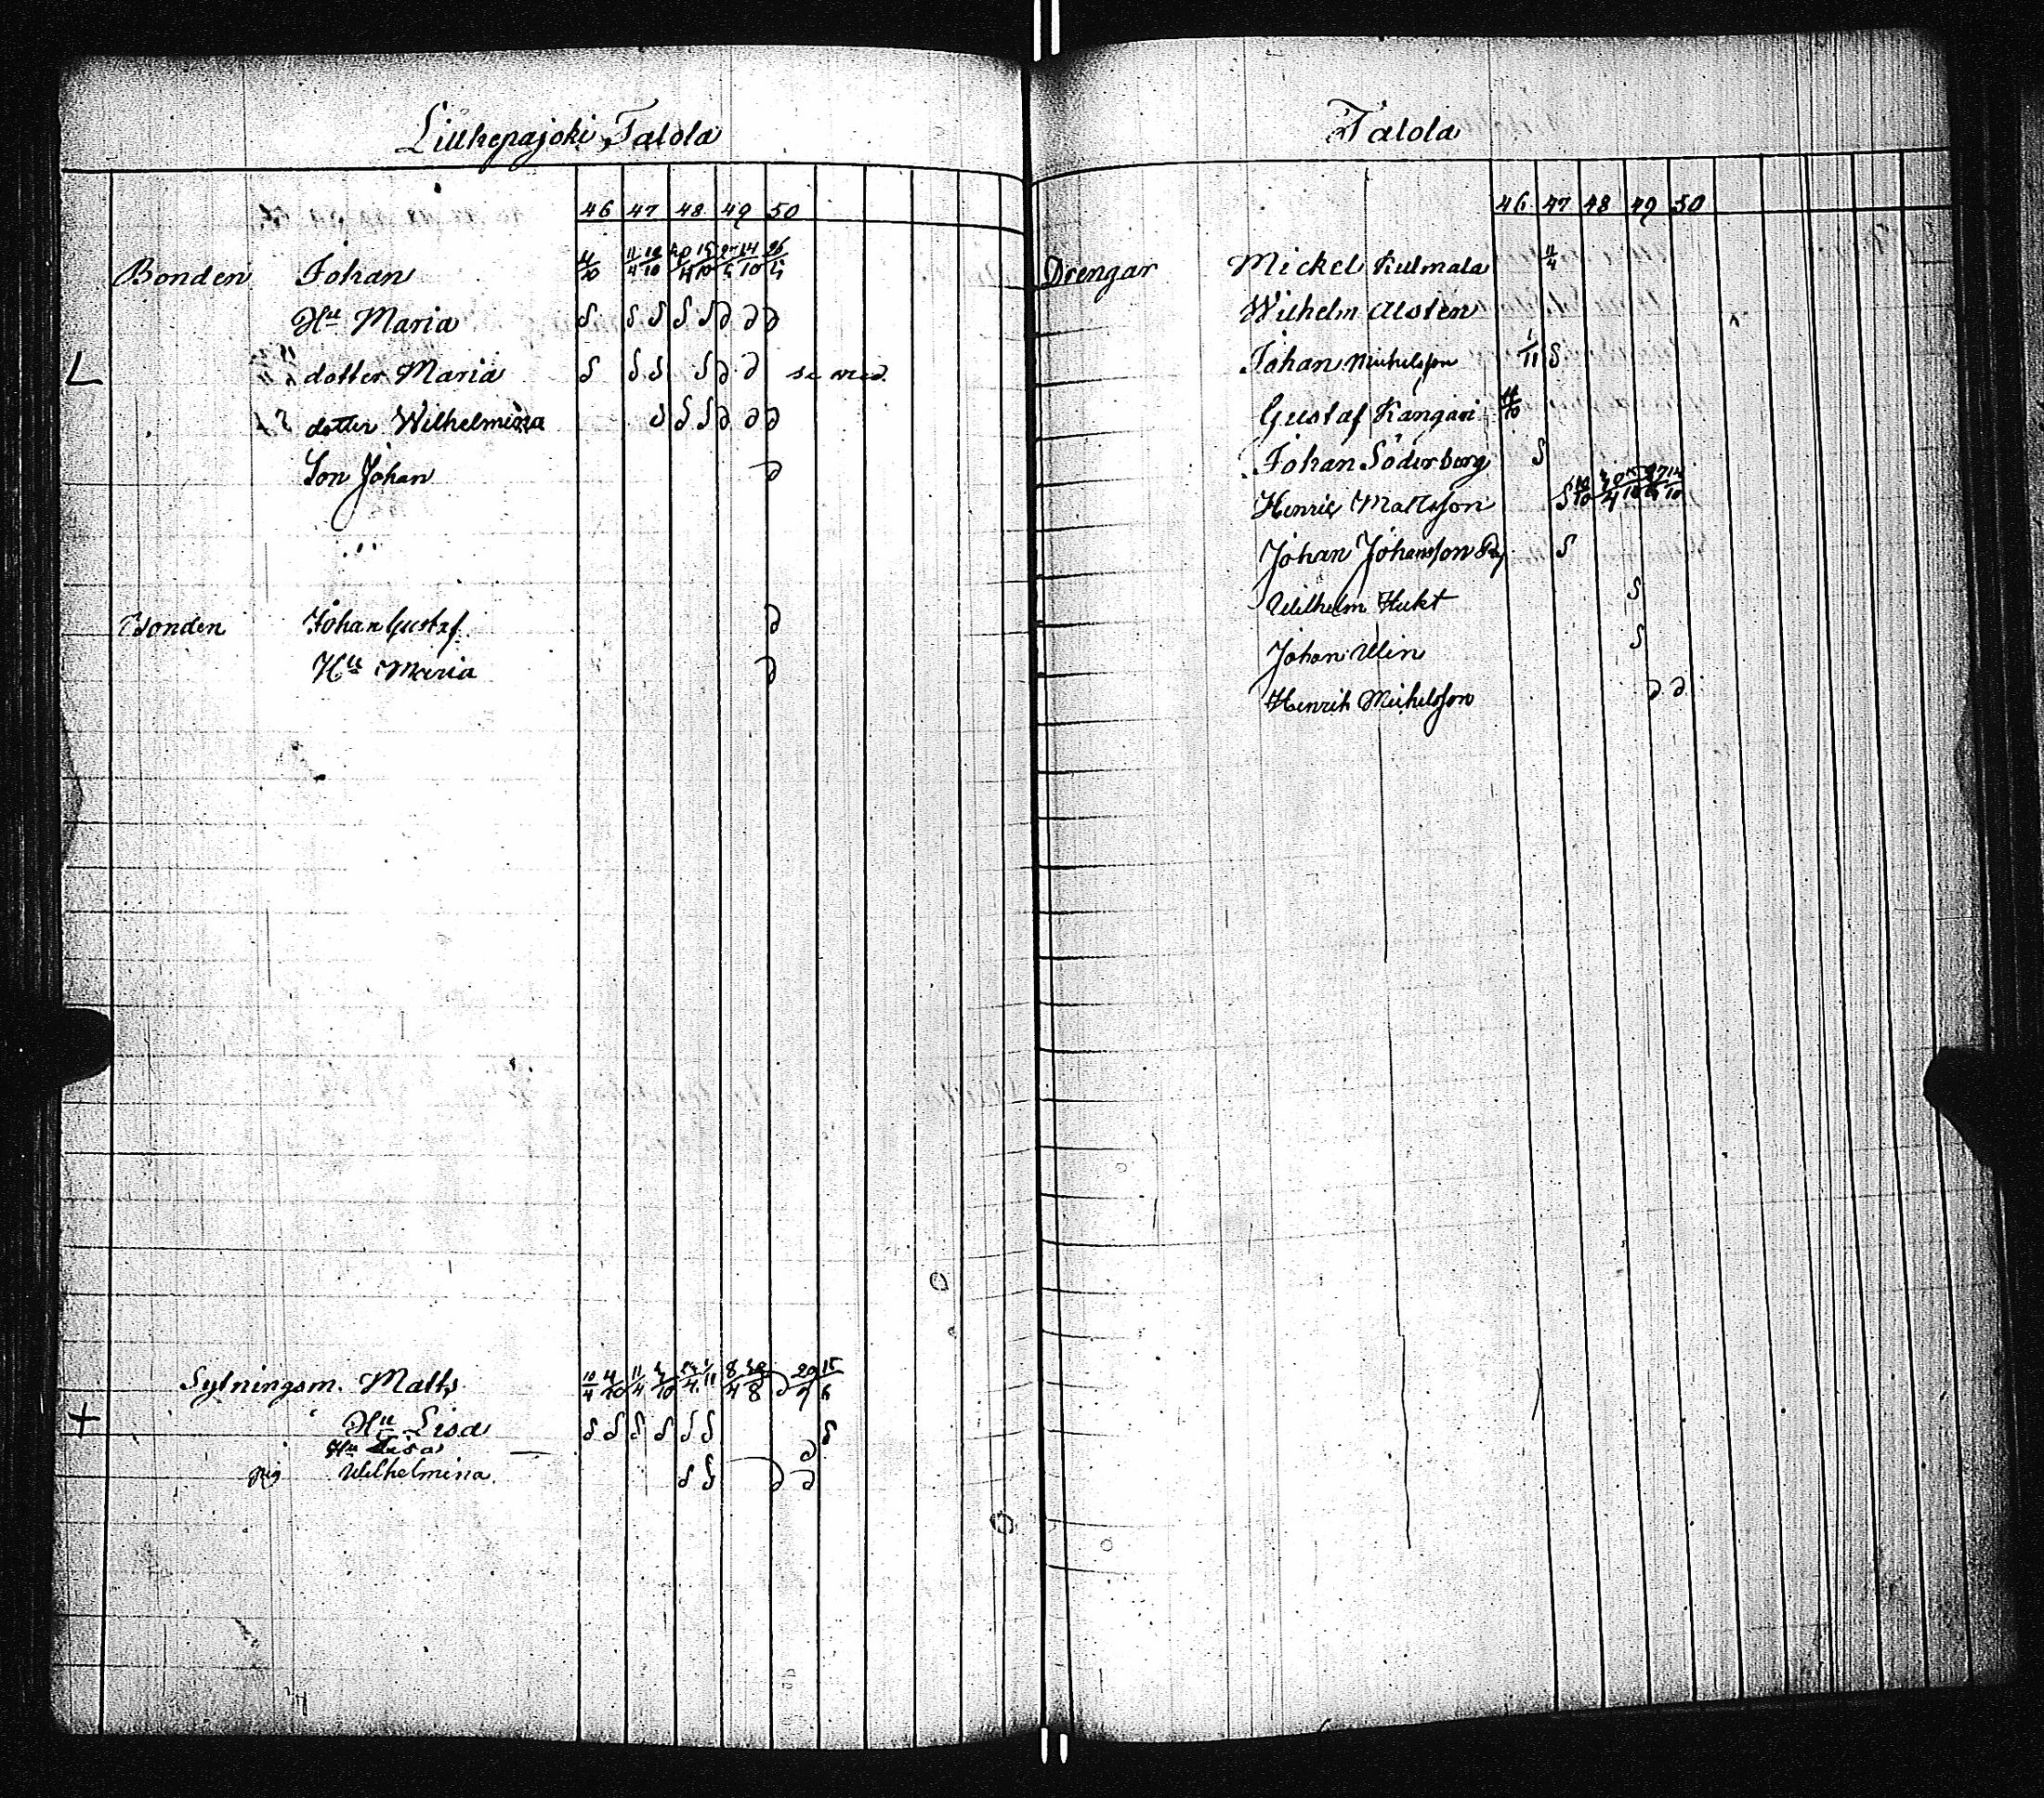 Liukepajoki Talola
46 47 48 49 50
Bonden Johan 11/10 11/4 10/10 30/4 15/10 27/4 14/10 26/4
Hu Maria S S S S S d d d
L dotter Maria S S S S d d se ned.
dotter Wilhelmina S S S d d d
Son Johan d
Bonden Johan Gustaf d
Hu Maria d
Sytningsm. Matts 10/4 4/10 11/4 3/10 /4 /11 8/4 /8 d 15/6
+ Hu Lisa S S S S S S S
Hu Lisa — d
pig Wilhelmina S S d d
Talola
46 47 48 49 50
Drengar Mickel Kulmala 11/4
Wilhelm Alsten
Johan Michelsson 1/11 S
Gustaf Kangari 11/10
Johan Söderberg S
Henric Mattsson S 10/10 30/4 15/10 27/4 14/10
Johan Johansson S
Wilhelm Hukt S
Johan Ulin S
Henrik Michelsson d d